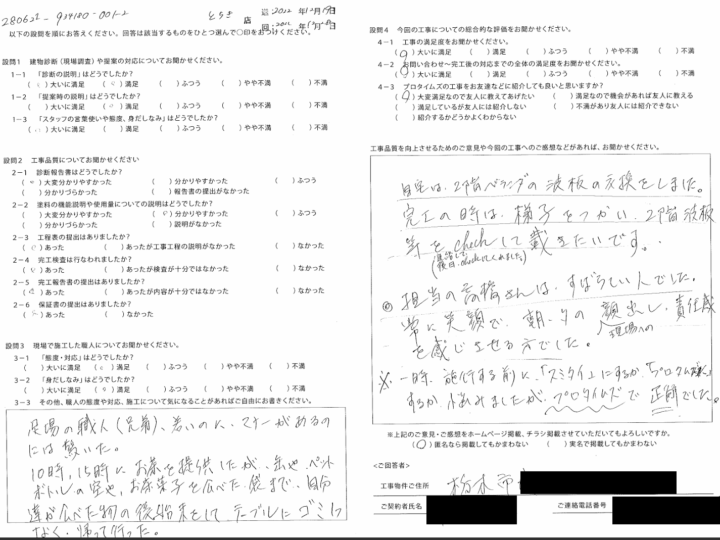 280621-914180-001-2
とちぎ 店
2012年12月19日
2012年12月28日
以下の設問を順にお答えください。回答は該当するものをひとつ選んで○印をおつけください。
設問1 建物診断(現場調査)や提案の対応についてお聞かせください。
1-1 「診断の説明」はどうでしたか?
(○)大いに満足 ( )満足 ( )ふつう ( )やや不満 ( )不満
1-2 「提案時の説明」はどうでしたか?
( )大いに満足 (○)満足 ( )ふつう ( )やや不満 ( )不満
1-3 「スタッフの言葉使いや態度、身だしなみ」はどうでしたか?
(○)大いに満足 ( )満足 ( )ふつう ( )やや不満 ( )不満
設問2 工事品質についてお聞かせください
2-1 診断報告書はどうでしたか?
(○)大変分かりやすかった ( )分かりやすかった ( )ふつう
( )分かりづらかった ( )報告書の提出がなかった
2-2 塗料の機能説明や使用量についての説明はどうでしたか?
( )大変分かりやすかった (○)分かりやすかった ( )ふつう
( )分かりづらかった ( )説明がなかった
2-3 工程表の提出はありましたか?
(○)あった ( )あったが工事工程の説明がなかった ( )なかった
2-4 完工検査は行なわれましたか?
(○)あった ( )あったが検査が十分ではなかった ( )なかった
2-5 完工報告書の提出はありましたか?
(○)あった ( )あったが内容が十分ではなかった ( )なかった
2-6 保証書の提出はありましたか?
(○)あった ( )なかった
設問3 現場で施工した職人についてお聞かせください。
3-1 「態度・対応」はどうでしたか?
( )大いに満足 (○)満足 ( )ふつう ( )やや不満 ( )不満
3-2 「身だしなみ」はどうでしたか?
( )大いに満足 (○)満足 ( )ふつう ( )やや不満 ( )不満
3-3 その他、職人の態度や対応、施工について気になることがあればご自由にお書きください。
足場の職人(兄弟)、若いのに、マナーがあるの
には驚いた。
10時、15時にお茶を提供したが、缶や、ペット
ボトルの空や、お茶菓子を食べた袋まで、自分
達が食べた物の後始末をして、テーブルにゴミも
なく、帰って行った。
設問4 今回の工事についての総合的な評価をお聞かせください。
4-1 工事の満足度をお聞かせください。
(○)大いに満足 ( )満足 ( )ふつう ( )やや不満 ( )不満
4-2 お問い合わせ~完工後の対応までの全体の満足度をお聞かせください。
(○)大いに満足 ( )満足 ( )ふつう ( )やや不満 ( )不満
4-3 プロタイムズの工事をお友達などに紹介しても良いと思いますか?
(○)大変満足なので友人に教えてあげたい ( )満足なので機会があれば友人に教える
( )満足しているが友人には紹介しない ( )不満があり友人には紹介できない
( )紹介するかどうかよくわからない
工事品質を向上させるためのご意見や今回の工事へのご感想などがあれば、お聞かせください。
自宅は、2階ベランダの波板の交換をしました。
完工の時は、梯子をつかい、2階波板
等をcheckして戴きたいです。
(後日、checkしてくれました。)
◎担当の高橋さんは、すばらしい人でした。
常に笑顔で、朝・夕の顔出し、責任感
現場への
を感じさせる方でした。
※一時、施行する前に、「スミタイ」にするか、「プロタイムズ」に
するか、悩みましたが、プロタイムズで正解でした。
※上記のご意見・ご感想をホームページ掲載、チラシ掲載させていただいてもよろしいですか。
(○)匿名なら掲載してもかまわない ( )実名で掲載してもかまわない
<ご回答者>
工事物件ご住所 栃木市
ご契約者氏名 ご連絡先電話番号